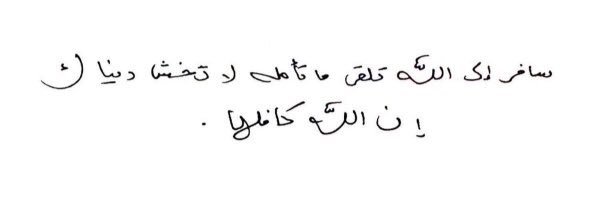 سافر إلى الله تلقى ما تأمله لا تخشا دنياك
إن الله كافلها .